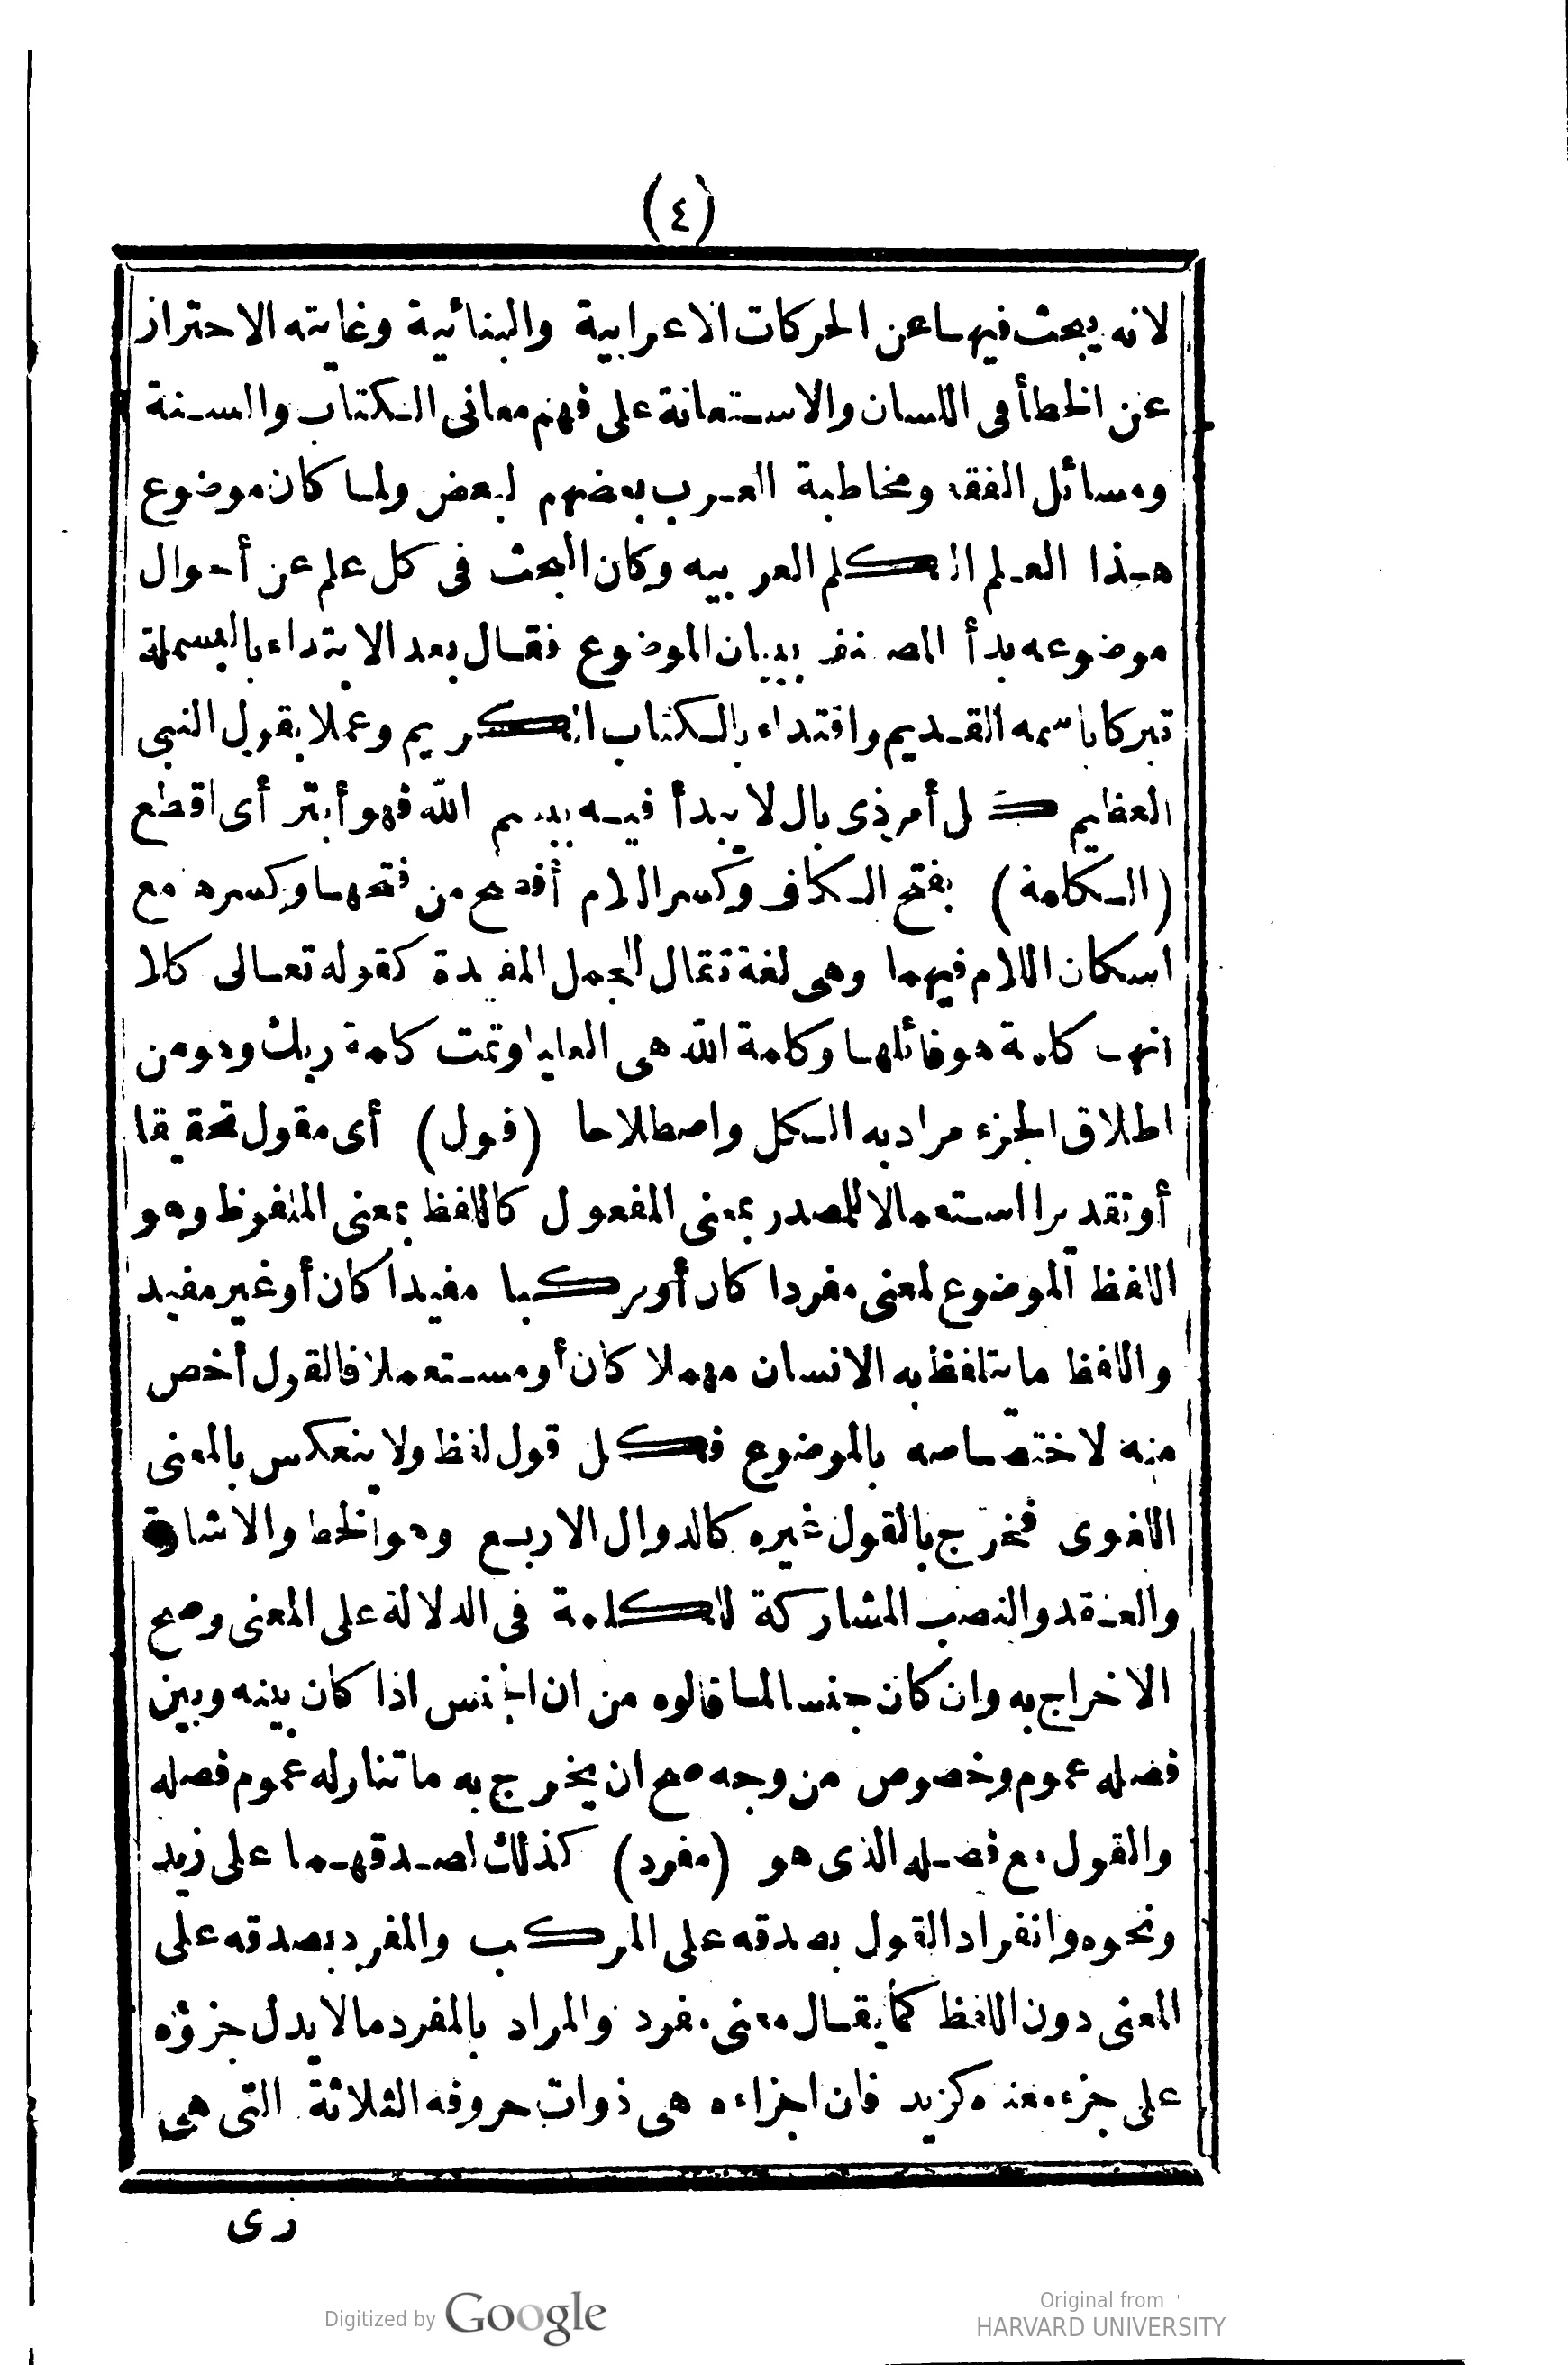 (٤)
لانه يبحث فيها عن الحركات الاعرابية والبنائية وغايته الاحتراز
عن الخطأ فى اللسان والاستعانة على فهم معانى الكتاب والسنة
ومسائل الفقه ومخاطبة العرب بعضهم لبعض ولما كان موضوع
هذا العلم الكلم العربيه وكان البحث فى كل علم عن أحوال
موضوعه بدأ المصنف ببيان الموضوع فقال بعد الابتداء بالبسملة
تبركا باسمه القديم واقتداء بالكتاب الكريم وعملا بقول النبى
العظيم كل أمر ذى بال لا يبدأ فيه ببسم الله فهو أبتر أى اقطع
(الكلمة) بفتح الكاف وكسر اللام أفصح من فتحها وكسره مع
اسكان اللام فيهما وهى لغة تقال للجمل المفيدة كقوله تعالى كلا
انها كلمة هو قائلها وكلمة الله هى العليا وتمت كلمة ربك وهو من
اطلاق الجزء مرادبه الكل واصطلاحا (قول) أى مقول تحقيقا
أو تقديرا استعمالا للمصدر بمعنى المفعول كاللفظ بمعنى الملفوظ وهو
اللفظ الموضوع لمعنى مفردا كان أو مركبا مفيدا كان أو غير مفيد
واللفظ ما يتلفظ به الانسان مهملا كان أو مستعملا فالقول أخص
منه لاختصاصه بالموضوع فكل قول لفظ ولا ينعكس بالمعنى
اللغوى فخرج بالقول غيره كالدوال الاربع وهو الخط والاشارة
والعقد والنصب المشاركة للكلمة فى الدلالة على المعنى وصح
الاخراج به وان كان جنسا لما قالوه من ان الجنس اذا كان بينه وبين
فصله عموم وخصوص من وجه صح ان يخرج به ما تناوله عموم فصله
والقول مع فصله الذى هو (مفرد) كذلك لصدقهما على زيد
ونحوه وانفراد القول بصدقه على المركب والمفرد بصدقه على
المعنى دون اللفظ كما يقال معنى مفرد والمراد بالمفرد مالا يدل جزؤه
على جزء معناه كزيد فان اجزاءه هى ذوات حروفه الثلاثة التى هى
زى
Digitized by Google
Original from
HARVARD UNIVERSITY